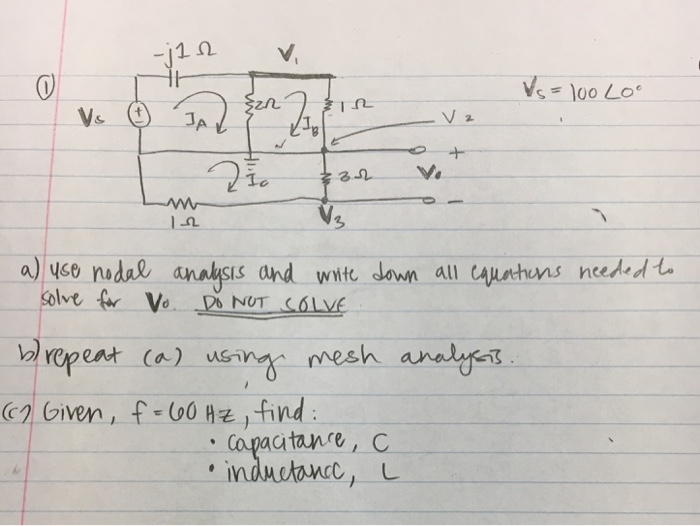 -j1 Ω V₁
① Vs = 100 ∠0°
Vs I_A 2Ω I_B 1Ω V₂
+
I_C 3Ω V₀
-
1Ω V₃
a) use nodal analysis and write down all equations needed to
solve for V₀. DO NOT SOLVE
b) repeat (a) using mesh analysis.
(c) Given, f = 60 Hz, find:
• capacitance, C
• inductance, L